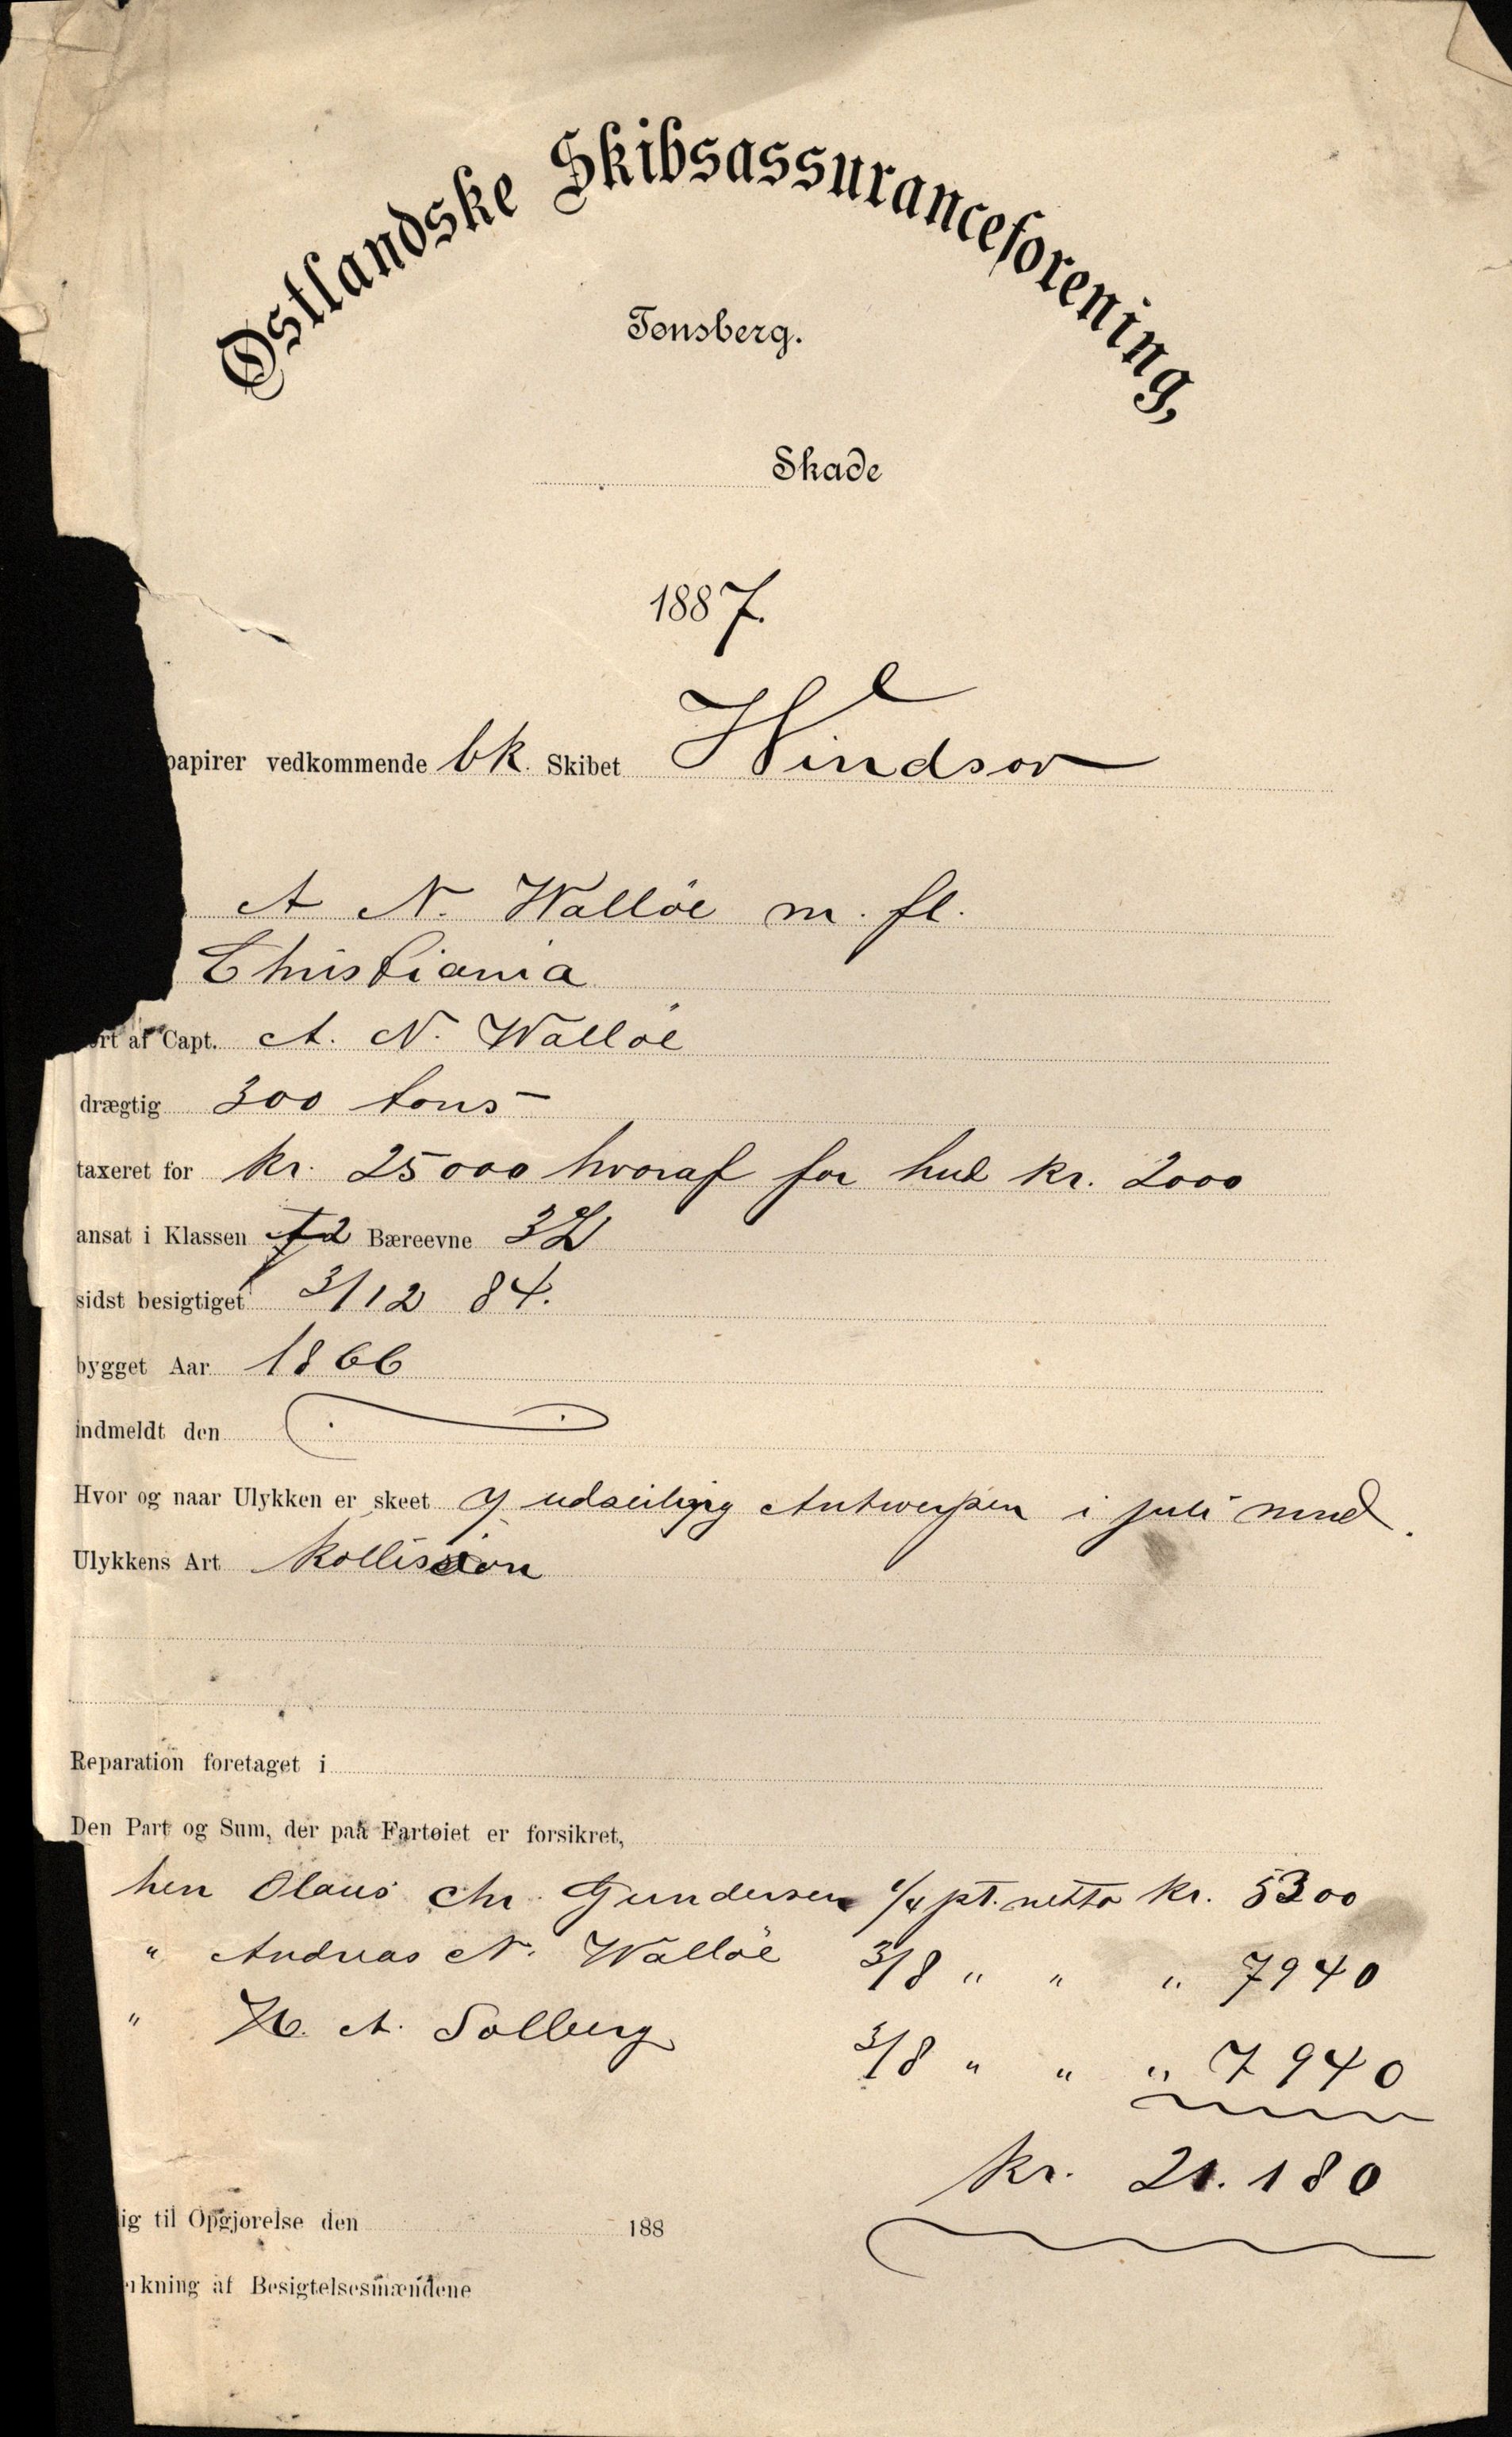 Østlandske Skibsassuranceforening,
Tønsberg.
Skade
1887.
papirer vedkommende bk. Skibet Windsor
A N. Walløe m. fl.
Christiania
ørt af Capt. A. N. Walløe
drægtig 300 tons
taxeret for kr. 25000 hvoraf for hud kr. 2000
ansat i Klassen A2 Bæreevne
sidst besigtiget 3/12 84.
bygget Aar 1866
indmeldt den
Hvor og naar Ulykken er skeet udseiling Antwerpen i juli mnd.
Ulykkens Art Kollision
Reparation foretaget i
Den Part og Sum, der paa Fartøiet er forsikret,
herr Olaus Chr. Gundersen 1/4 pt. netto kr. 5300
" Andreas N. Walløe 3/8 " " " 7940
" H. A. Solberg 3/8 " " " 7940
kr. 21.180
ig til Opgjørelse den 188
rkning af Besigtelsesmændene